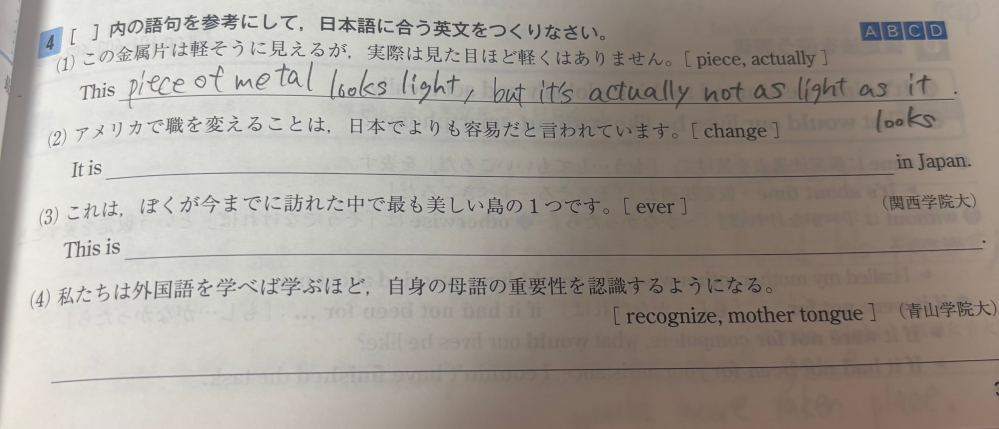 4 [ ]内の語句を参考にして，日本語に合う英文をつくりなさい。 A B C D
(1) この金属片は軽そうに見えるが，実際は見た目ほど軽くはありません。[ piece, actually ]
This piece of metal looks light, but it's actually not as light as it .
looks
(2) アメリカで職を変えることは，日本でよりも容易だと言われています。[ change ]
It is in Japan.
(3) これは，ぼくが今までに訪れた中で最も美しい島の1つです。[ ever ] (関西学院大)
This is .
(4) 私たちは外国語を学べば学ぶほど，自身の母語の重要性を認識するようになる。
[ recognize, mother tongue ] (青山学院大)